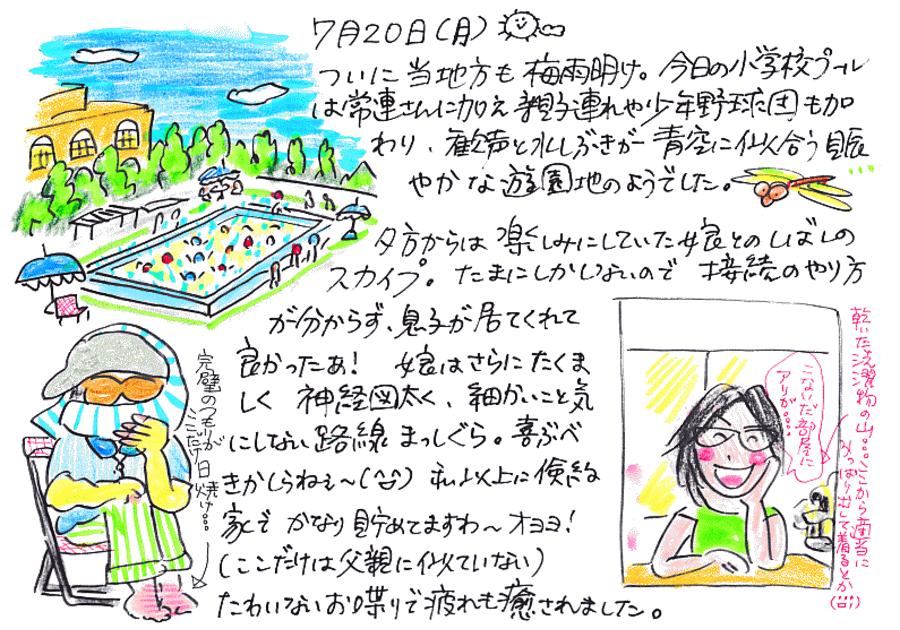 7月20日(月)
ついに当地方も梅雨明け。今日の小学校プール
は常連さんに加え親子連れや少年野球団も加
わり、歓声と水しぶきが青空に似合う賑
やかな遊園地のようでした。
夕方からは楽しみにしていた娘としばしの
スカイプ。たまにしかしないので接続のやり方
が分からず、息子が居てくれて
良かったぁ! 娘はさらにたくま
しく神経図太く、細かいこと気
にしない路線まっしぐら。喜ぶべ
きかしらねぇ〜(^^) 私以上に倹約
家でかなり貯めてますわ〜オヨヨ!
(ここだけは父親に似ていない)
たわいないお喋りで疲れも癒されました。
完璧のつもりが
ここだけ日焼け…
こないだ部屋に
アリが…
乾いた洗濯物の山…そこから適当に
ひっぱり出して着るとか